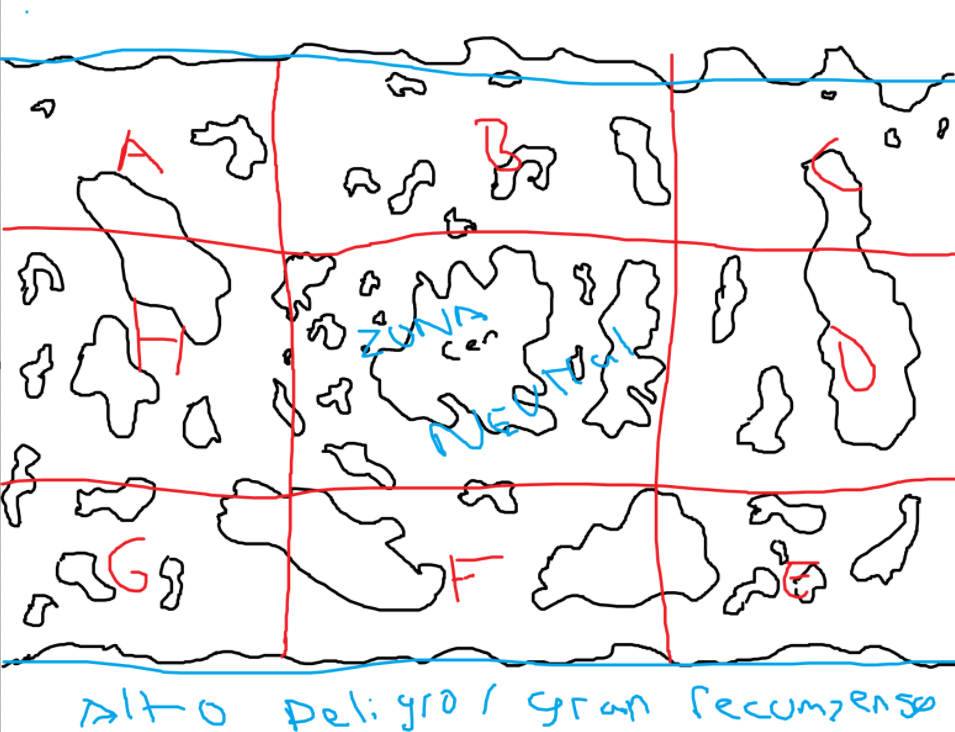 A
B
C
H
ZONA
cer
NEUtral
D
G
F
E
Alto peligro / gran recumzenso